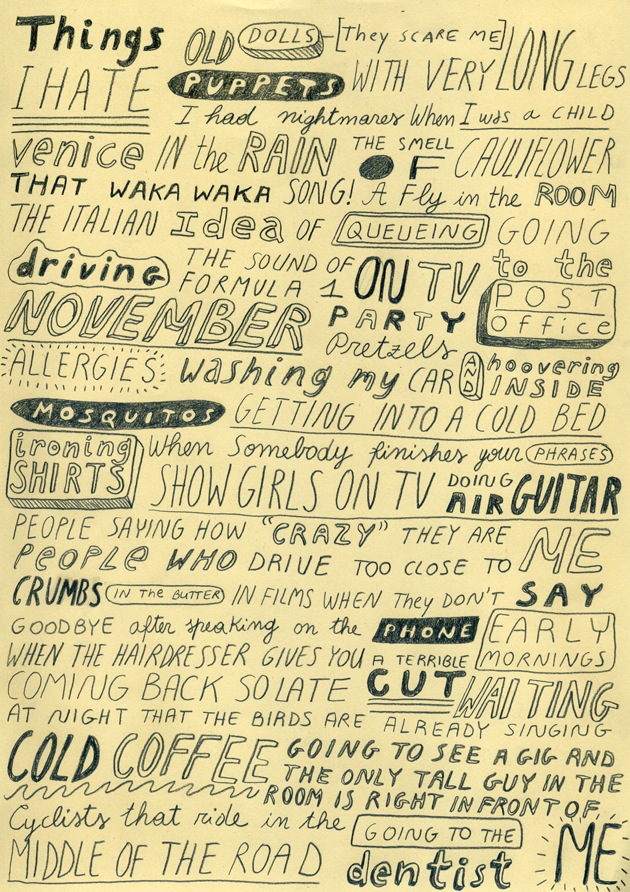 Things OLD DOLLS [They SCARE ME]
I HATE PUPPETS WITH VERY LONG LEGS
I had nightmares When I was a CHILD
venice IN the RAIN THE SMELL OF CAULIFLOWER
THAT WAKA WAKA SONG! A Fly in the ROOM
THE ITALIAN Idea OF QUEUEING GOING to the POST office
driving THE SOUND OF FORMULA 1 ON TV
NOVEMBER PARTY Pretzels
ALLERGIES washing my CAR AND hoovering INSIDE
MOSQUITOS GETTING INTO A COLD BED
ironing SHIRTS When Somebody finishes your PHRASES
SHOWGIRLS ON TV DOING AIR GUITAR
PEOPLE SAYING HOW "CRAZY" THEY ARE
PEOPLE WHO DRIVE TOO CLOSE TO ME
CRUMBS IN THE BUTTER IN FILMS WHEN They DON'T SAY
GOODBYE after speaking on the PHONE EARLY MORNINGS
WHEN THE HAIRDRESSER GIVES YOU A TERRIBLE CUT
COMING BACK SO LATE WAITING
AT NIGHT THAT THE BIRDS ARE ALREADY SINGING
COLD COFFEE GOING TO SEE A GIG AND
THE ONLY TALL GUY IN THE
ROOM IS RIGHT IN FRONT OF ME
Cyclists that ride in the GOING TO THE
MIDDLE OF THE ROAD dentist